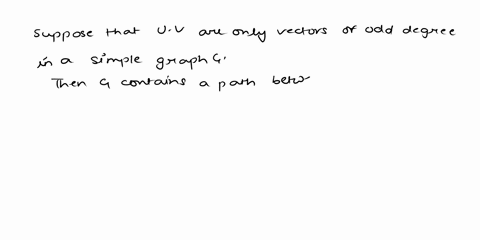 Suppose that U.V are only vectors of odd degree
in a simple graph G.
Then G contains a path betw